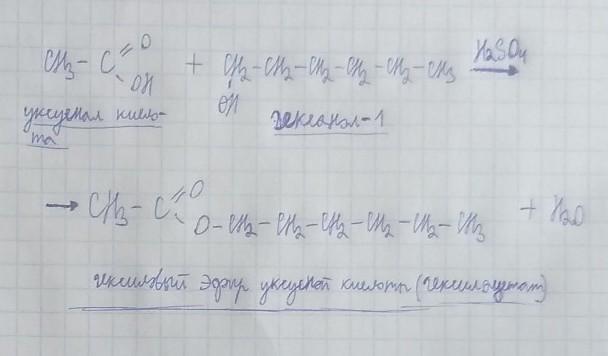 CH3 - C =O OH + CH2-CH2-CH2-CH2-CH2-CH3 H2SO4 →
OH
уксусная кисло-
та
гексанол-1
→ CH3 - C =O O-CH2-CH2-CH2-CH2-CH2-CH3 + H2O
гексиловый эфир уксусной кислоты (гексилацетат)